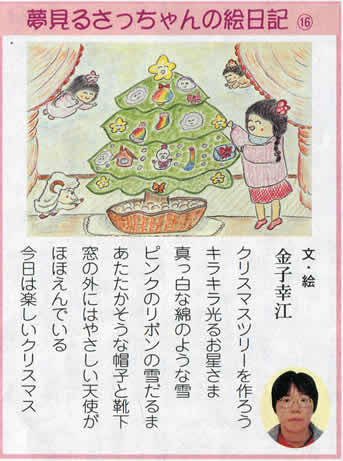 夢見るさっちゃんの絵日記 ⑯
文・絵
金子幸江
クリスマスツリーを作ろう
キラキラ光るお星さま
真っ白な綿のような雪
ピンクのリボンの雪だるま
あたたかそうな帽子と靴下
窓の外にはやさしい天使が
ほほえんでいる
今日は楽しいクリスマス